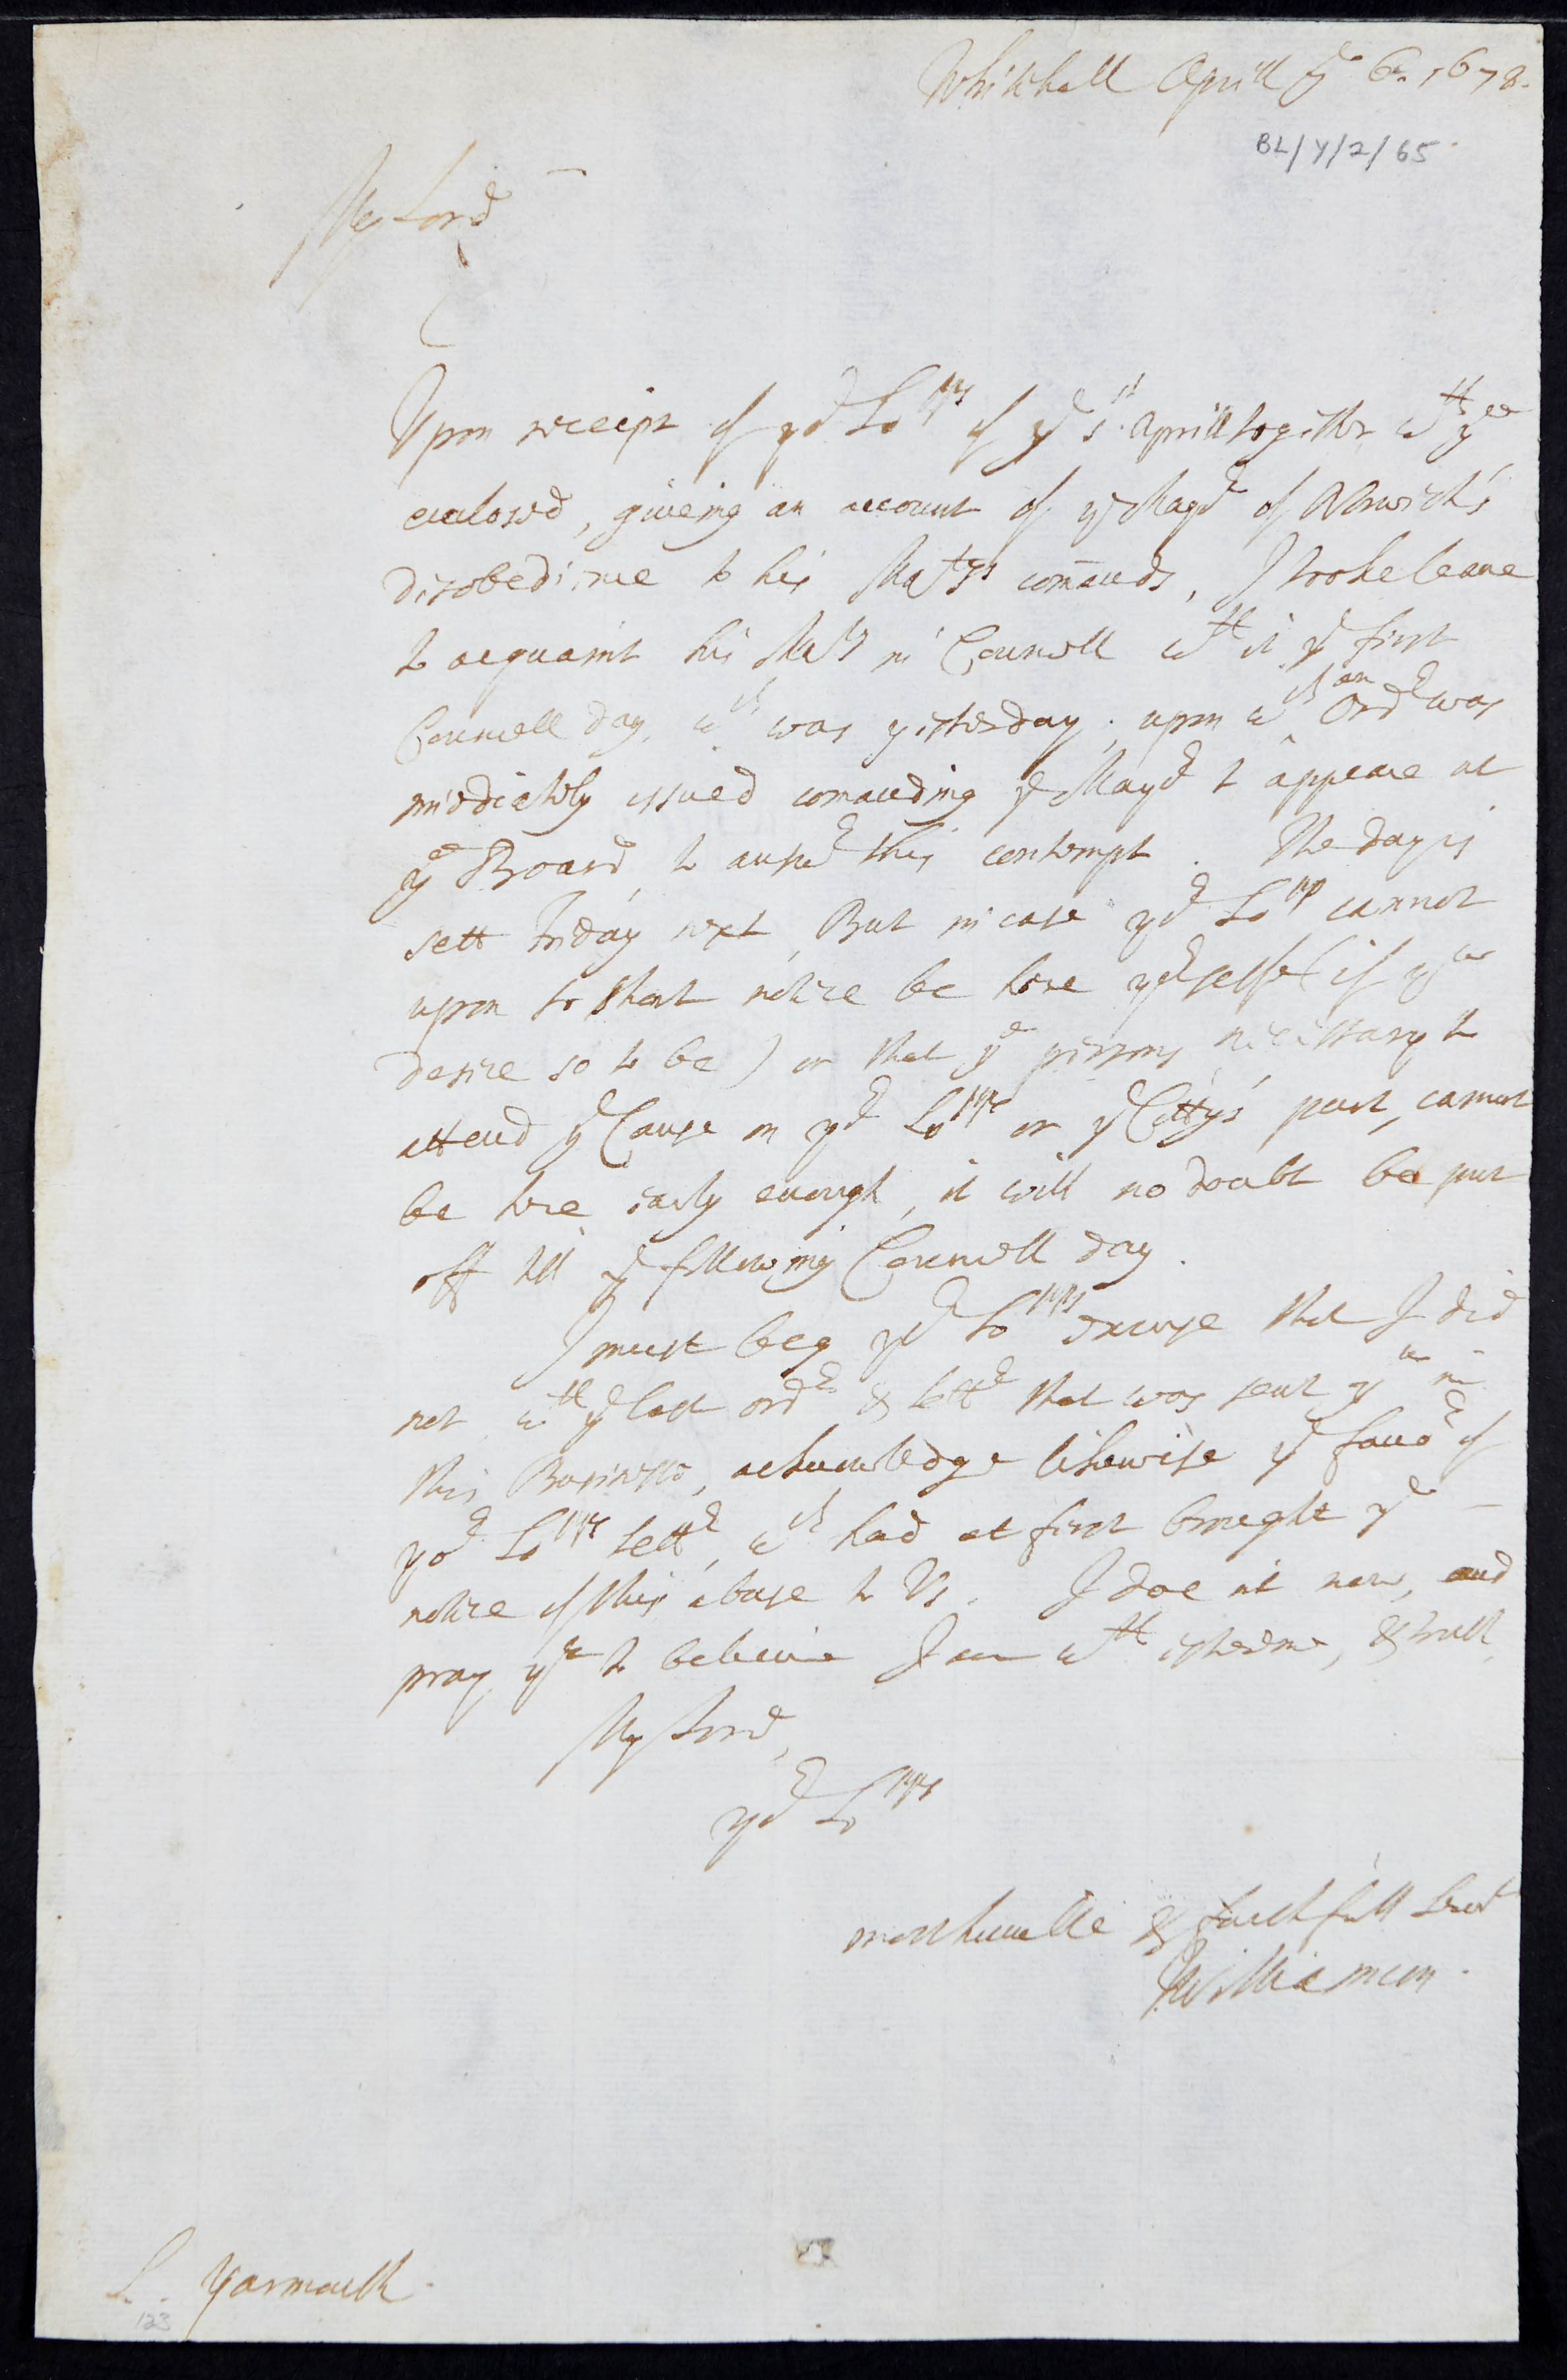 Whitehall Aprill ye 6th. 1678.
BL/Y/2/65
My Lord
Upon receipt of yor Lopps of ye 1st Aprill together wth ye
enclosed, giveing an account of ye Mayr of Norwich's
disobedience to his Matys comands, I tooke leave
to acquaint his Maty in Councell wth it ye first
Councell day, wch was yesterday; upon wch an Ordr was
imediately issued comanding ye Mayr to appeare at
ye Board, to answr this contempt. The day is
sett Friday next, But in case yor Lopp cannot
upon so short notice be here yorselfe (if you
desire so to be) or that ye persons necessary to
attend ye Cause on yor Lopps or ye Citty's part, cannot
be here early enough, it will no doubt be put
off till ye following Councell day.
I must beg yor Lopps excuse that I did
not wth ye last ordr & lettr that was sent you in
this Businesse, acknowledge likewise ye favor of
yor Lopps lettr, wch had at first brought ye
notice of this abuse to Us. I doe it now, and
pray you to beleive I am wth esteeme, & truth,
My Lord,
yor Lopps
most humble & faithfull Servt
JWilliamson.
L. Yarmouth.
123